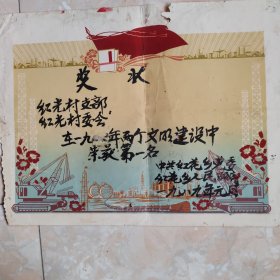 1
奖状
红光村支部
红光村委会:
在一九八八年两个文明建设中
荣获第一名
中共红光乡党委
红光乡人民政府
一九八九年元月